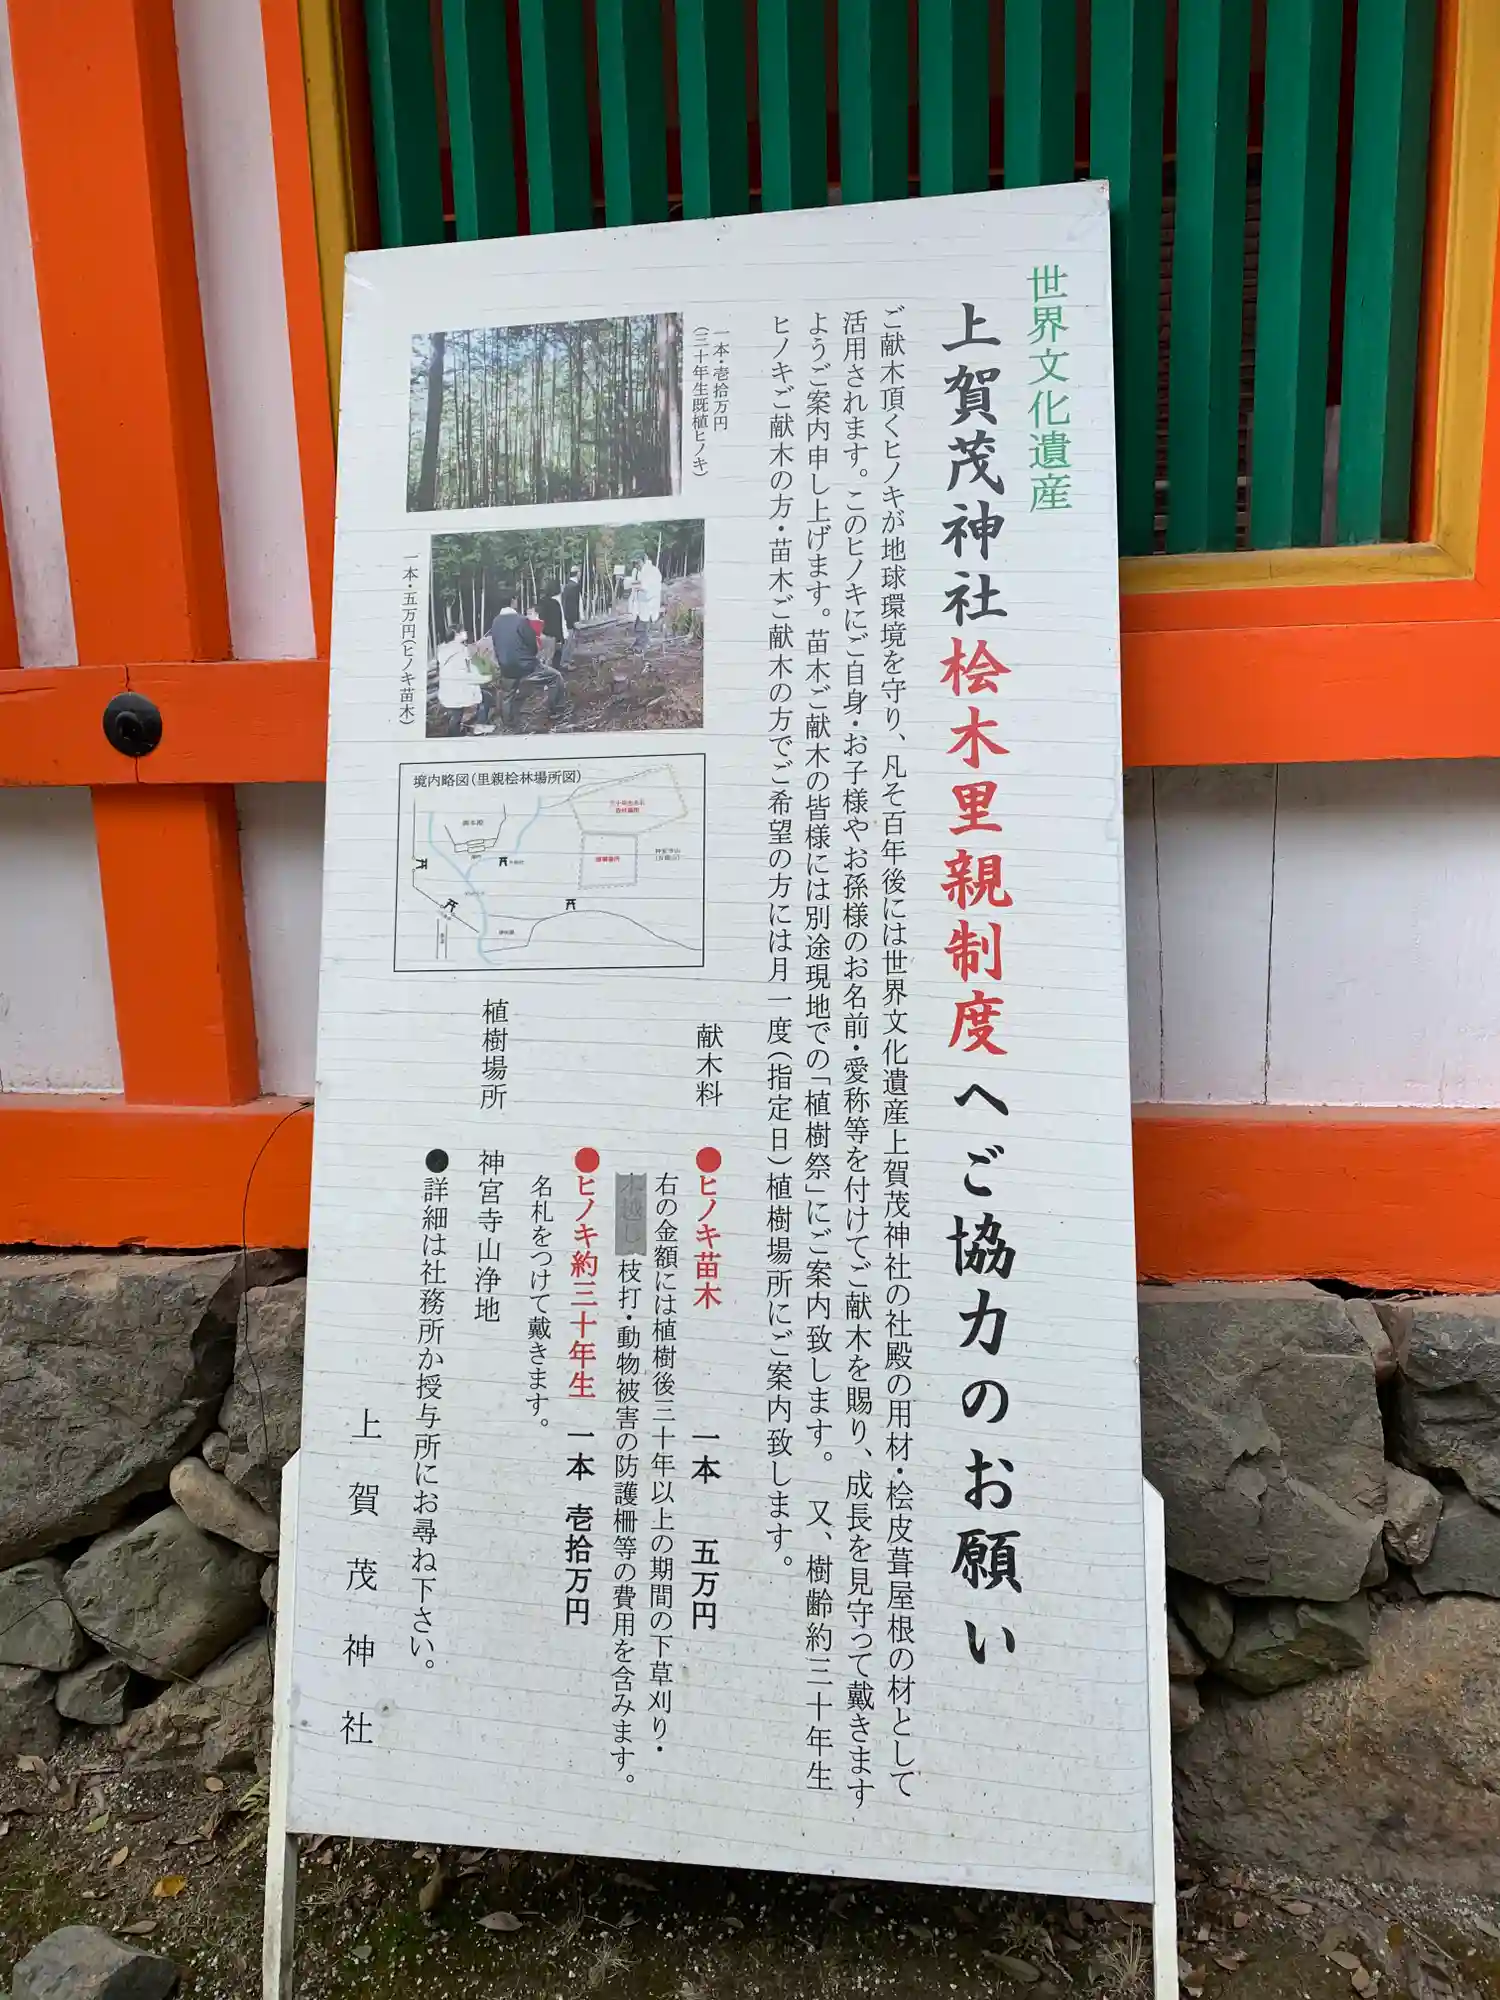 世界文化遺産
上賀茂神社桧木里親制度へご協力のお願い
ご献木頂くヒノキが地球環境を守り、凡そ百年後には世界文化遺産上賀茂神社の社殿の用材・桧皮葺屋根の材として
活用されます。このヒノキにご自身・お子様やお孫様のお名前・愛称等を付けてご献木を賜り、成長を見守って戴きます
ようご案内申し上げます。苗木ご献木の皆様には別途現地での「植樹祭」にご案内致します。又、樹齢約三十年生
ヒノキご献木の方・苗木ご献木の方でご希望の方には月一度(指定日)植樹場所にご案内致します。
一本・壱拾万円
(三十年生既植ヒノキ)
一本・五万円(ヒノキ苗木)
境内略図(里親桧林場所図)
献木料
●ヒノキ苗木 一本 五万円
右の金額には植樹後三十年以上の期間の下草刈り・
枝打・動物被害の防護柵等の費用を含みます。
●ヒノキ約三十年生 一本 壱拾万円
名札をつけて戴きます。
植樹場所 神宮寺山浄地
●詳細は社務所か授与所にお尋ね下さい。
上賀茂神社